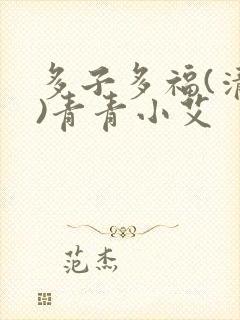 多子多福(清
)青青小艾
范杰